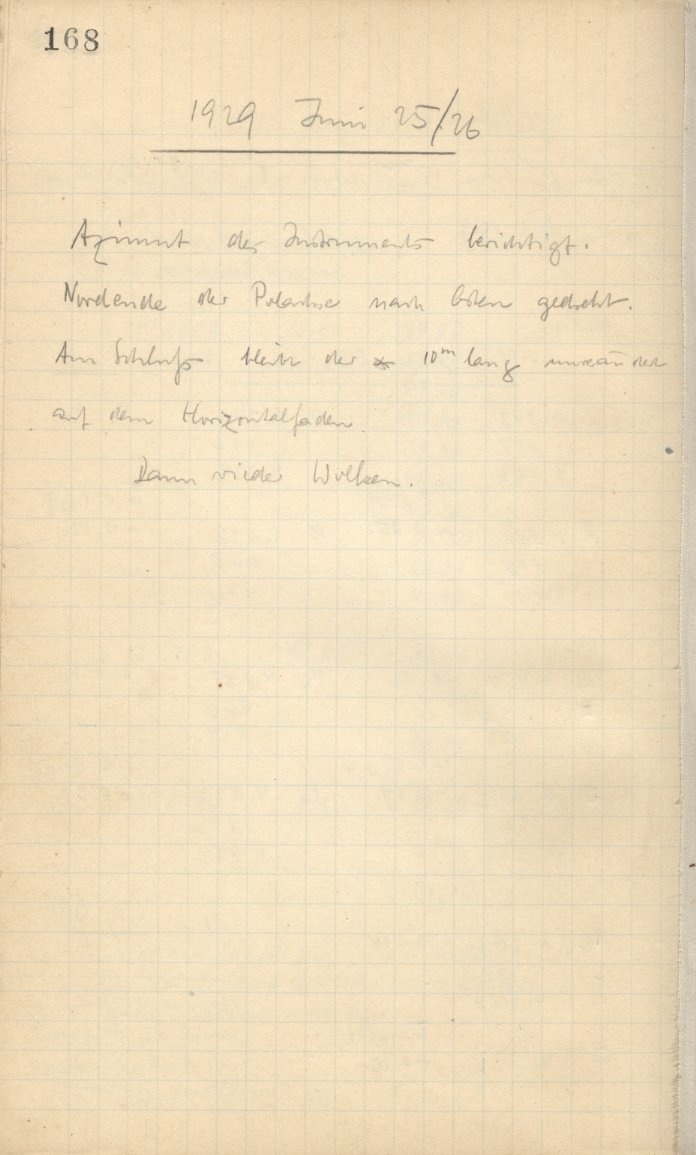 168
1929 Juni 25/26
Azimut des Instruments berichtigt.
Nordende der Polachse nach Osten gedreht.
Am Schluß bleibt der * 10m lang unverändert
auf dem Horizontalfaden.
Dann wieder Wolken.